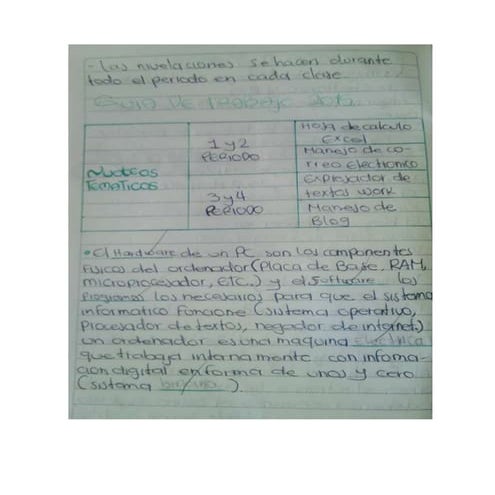 - Las nivelaciones se hacen durante
todo el periodo en cada clase
Guia De trabajo
Nucleos
Tematicos
1 y 2
PERIODO
Hoja de calculo
Excel
Manejo de co-
rreo Electronico
3 y 4
PERIODO
textos work
Manejo de
Blog
• El Hardware de un PC son los componentes
Fisicos del ordenador (Placa de Base, RAM,
microprocesador, ETC.) y el Software los
Programas los necesarios para que el sistema
informatico funcione (sistema operativo,
Procesador de textos, negador de internet.)
un ordenador es una maquina electrica
que trabaja internamente con infoma-
cion digital en forma de unos y cero
(sistema binario).